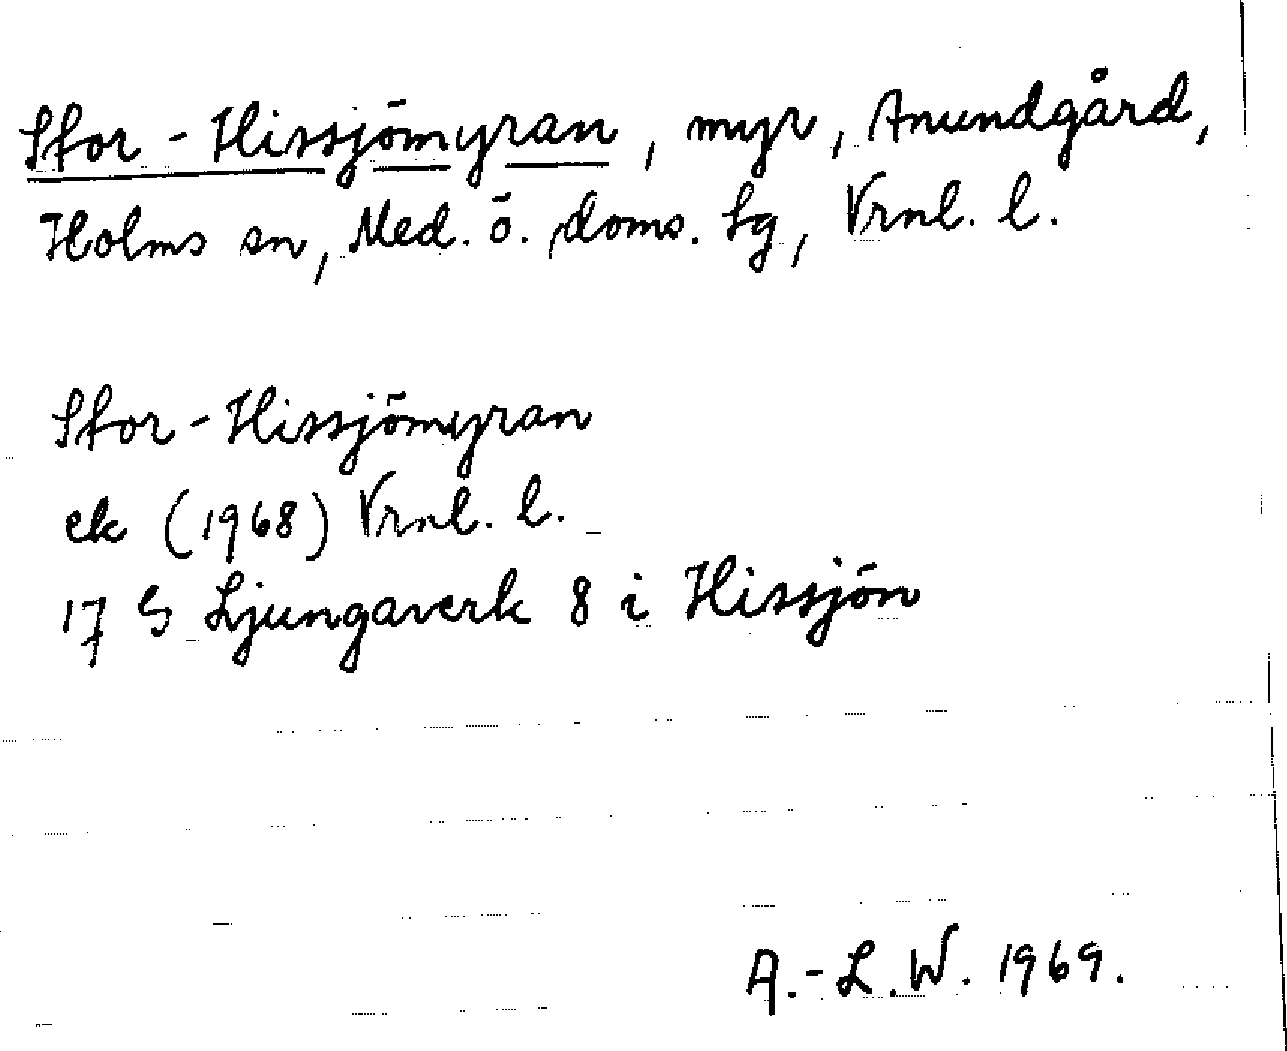 Stor-Hissjömyran, myr, Anundgård,
Holms sn, Med. ö. doms. lg, Vrnl. l.
Stor-Hissjömyran
ek (1968) Vrnl. l.
17 G Ljungaverk 8 i Hissjön
A.-L.W. 1969.